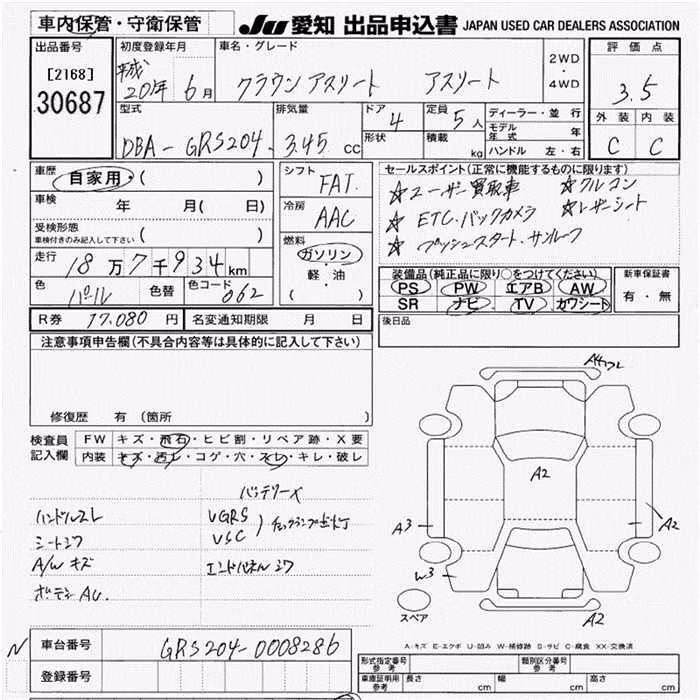 車内保管・守衛保管
JU 愛知 出品申込書 JAPAN USED CAR DEALERS ASSOCIATION
出品番号
[2168]
30687
初度登録年月
平成 20年 6月
車名・グレード
クラウンアスリート アスリート
2WD
・
4WD
評価点
3.5
外装 内装
C C
型式
DBA-GRS204
排気量
3.45 cc
ドア
4
形状
定員
5人
積載
kg
ディーラー・並行
モデル年式 年
ハンドル 左・右
車歴
自家用・( )
車検
年 月( 日)
受検形態
車検付きのみ記入して下さい ( )
走行
18万7千934km
色
パール
色替
色コード
062
シフト
FAT
冷房
AAC
燃料
ガソリン
・
軽・油
( )
セールスポイント(正常に機能するものに限ります)
☆ユーザー買取車 ☆クルコン
☆ETC・バックカメラ ☆レザーシート
☆プッシュスタート・サンルーフ
装備品(純正品に限り○をつけてください)
PS PW エアB AW
SR ナビ TV カワシート
新車保証書
有・無
R券 17.080 円
名変通知期限 月 日
後日品
注意事項申告欄(不具合内容等は具体的に記入して下さい)
修復歴 有(箇所 )
検査員
記入欄
FW キズ・飛石・ヒビ割・リペア跡・X要
内装 キズ・汚レ・コゲ・穴・スレ・キレ・破レ
バッテリーX
ハンドルスレ
シートシワ
A/Wキズ
ボデーAU.
VGRS
VSC
チェックランプ点灯
エンドパネルシワ
A2
A3
A2
W3
A2
スペア
A-キズ E-エクボ U-凹み W-補修跡 S-サビ C-腐食 XX-交換済
N
車台番号
GRS204-0008286
登録番号
形式指定番号
参考
類別区分番号
参考
車庫証明用
参考
長さ cm
幅 cm
高さ cm